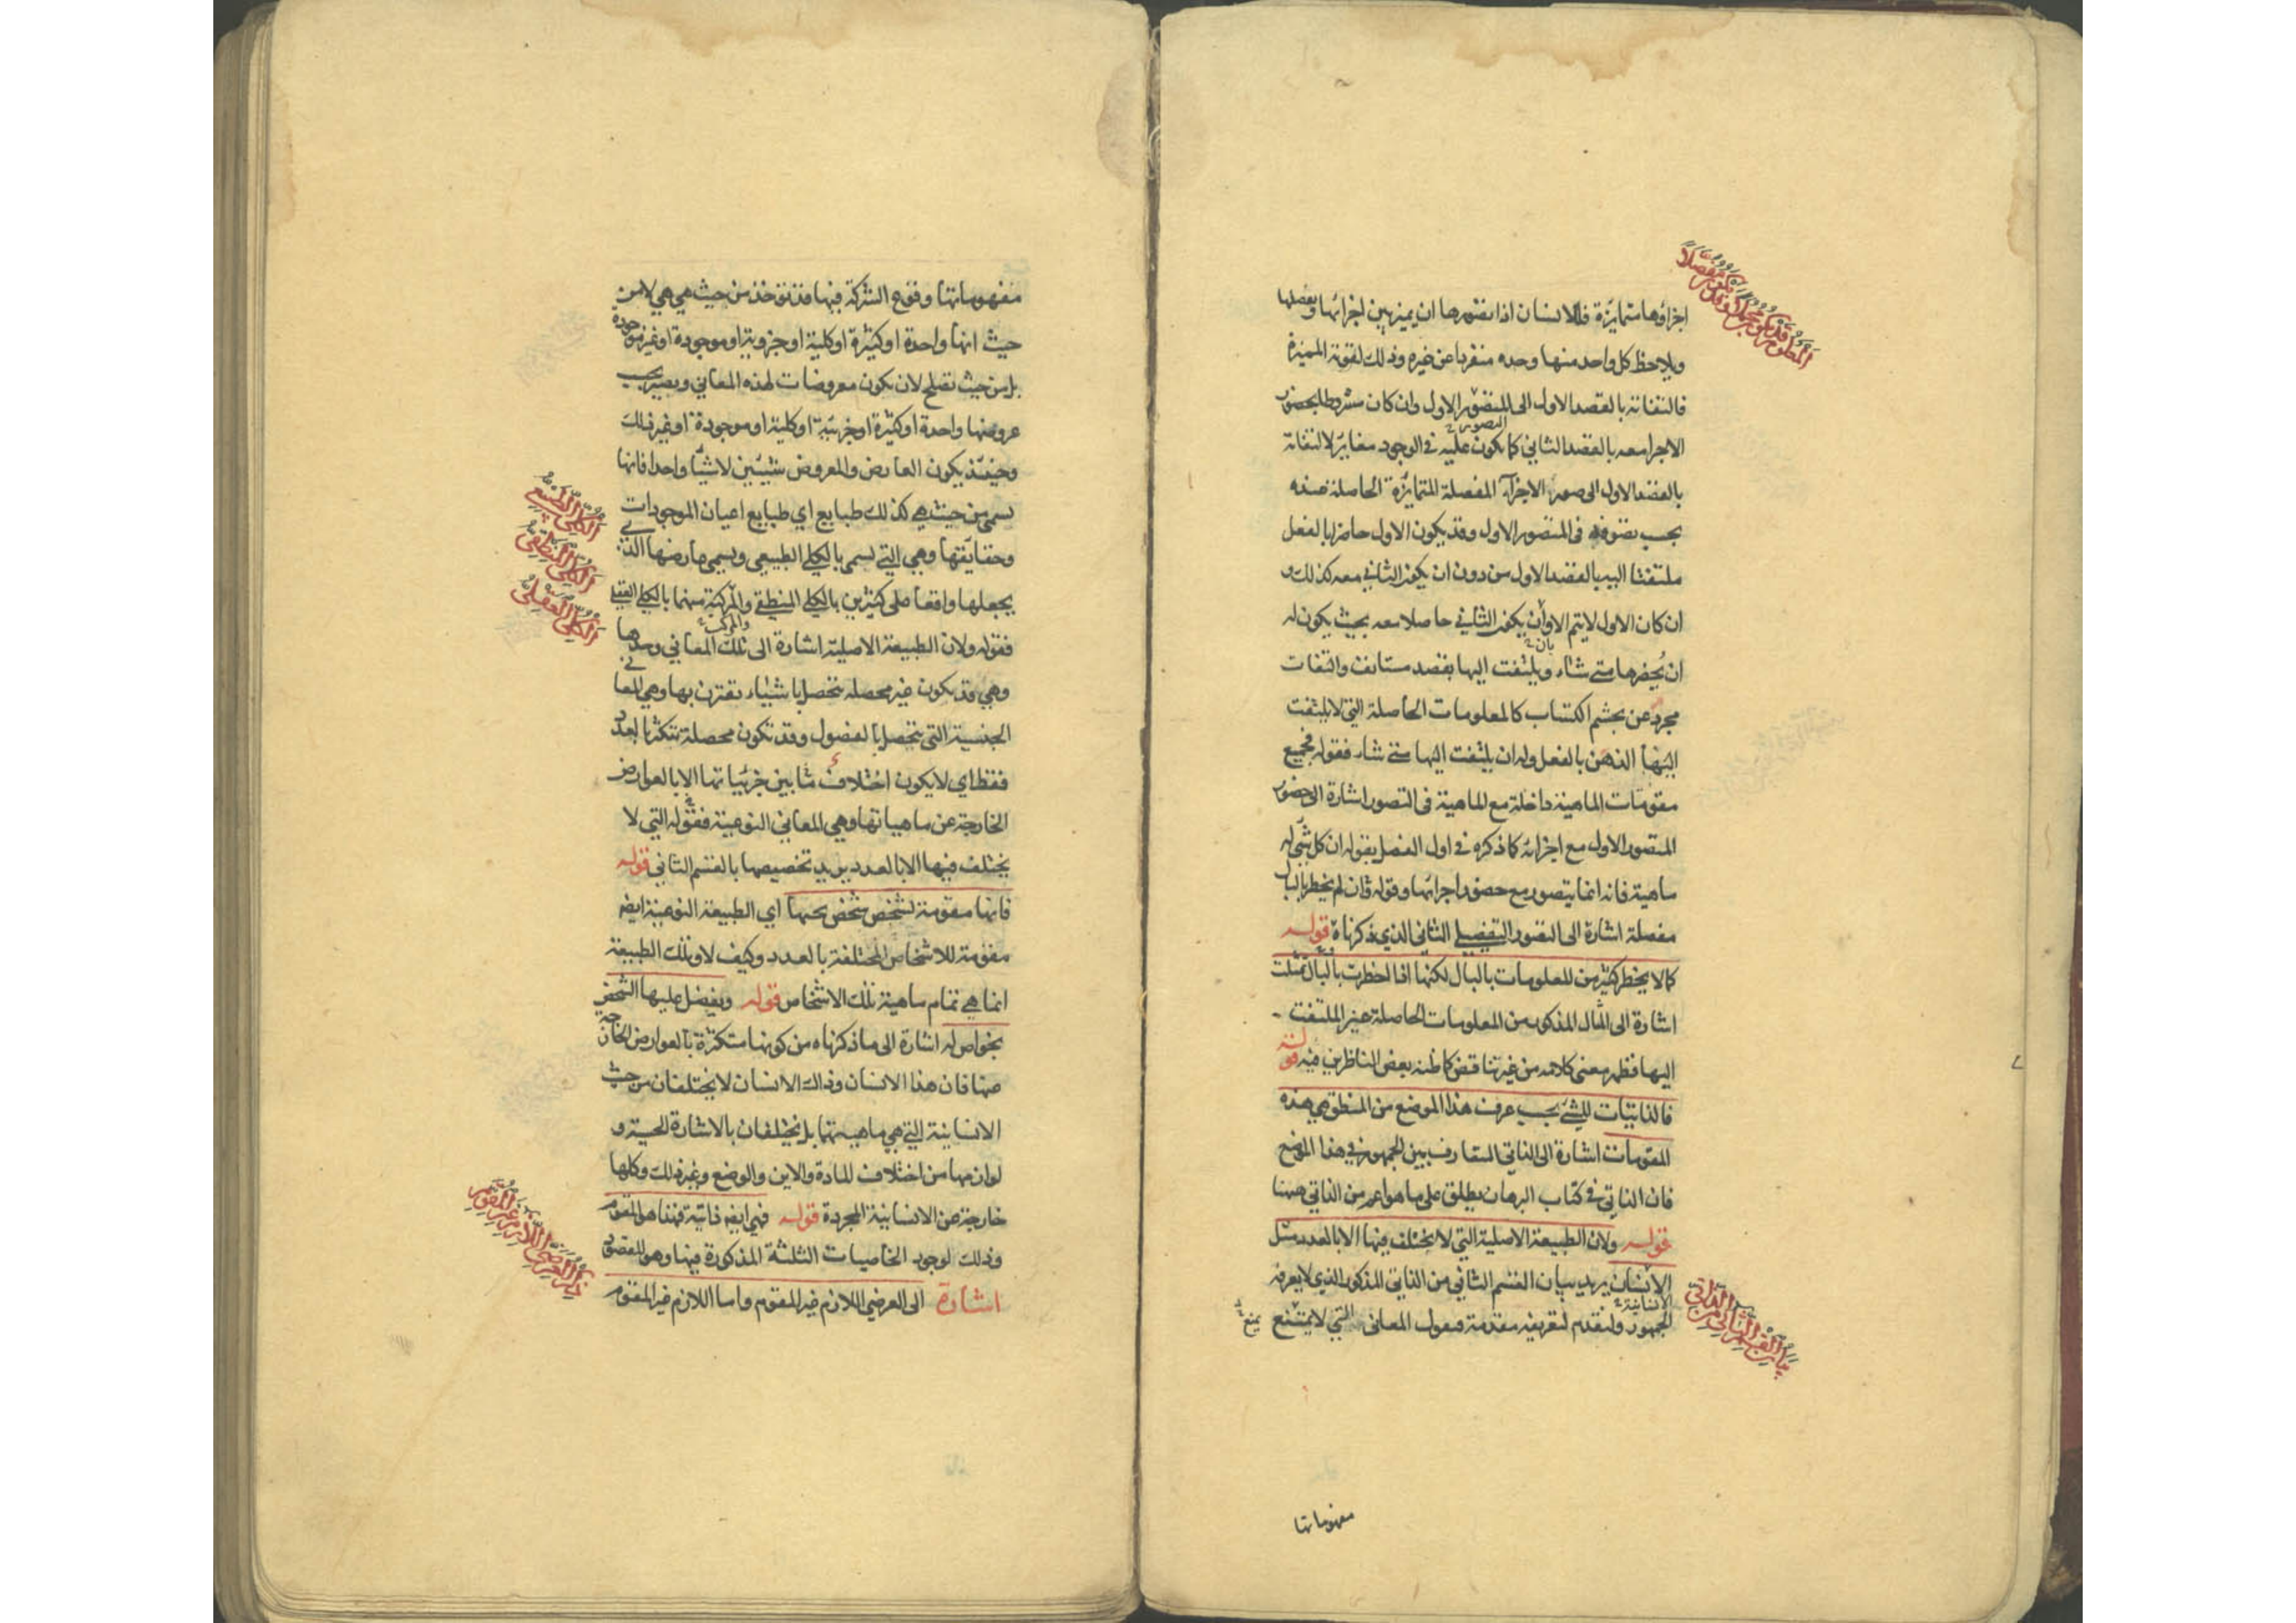 اجزاؤها متمايزة فللانسان اذا تصورها ان يميز بين اجزائها ويفصلها
ويلاحظ كل واحد منها وحده منفردا عن غيره وذلك لقوته المميزة
فالتفاته بالقصد الاول الى المتصور الاول وان كان مشروطا بحضور
الاجزا معه بالقصد الثاني كما يكون عليه في الوجود مغاير لالتفاته
التصور
بالقصد الاول الى صور الاجزآء المفصلة المتمايزة الحاصلة عنده
بحسب تصرفه في المتصور الاول وقد يكون الاول حاضرا بالفعل
ملتفتا اليه بالقصد الاول من دون ان يكون الثاني معه كذلك و
ان كان الاول لا يتم الا وان يكون الثاني حاصلا معه بحيث يكون له
بان
ان يحضرها متى شاء ويلتفت اليها بقصد مستانف والتفات
مجرد عن تجشم اكتساب كالمعلومات الحاصلة التي لا يلتفت
اليها الذهن بالفعل وله ان يلتفت اليها متى شاء فقوله فجميع
مقومات الماهية داخلة مع الماهية في التصور اشارة الى حضور
المتصور الاول مع اجزائه كما ذكره في اول الفصل بقوله ان كل شئ له
ماهية فانه انما يتصور مع حضور اجزائها وقوله وان لم يخطر بالبال
مفصلة اشارة الى التصور التفصيلي الثاني الذي ذكرناه قوله
كما لا يخطر كثير من المعلومات بالبال لكنها اذا اخطرت بالبال تمثلت
اشارة الى المثال المذكور من المعلومات الحاصلة غير الملتفت
اليها فظهر معنى كلامه من غير تناقض كما ظنه بعض الناظرين فيه قوله
فالذاتيات للشئ بحسب عرف هذا الموضع من المنطق هي هذه
المقومات اشارة الى الذاتي المتعارف بين الجمهور في هذا الموضع
فان الذاتي في كتاب البرهان يطلق على ما هو اعم من الذاتي ههنا
قوله ولان الطبيعة الاصلية التي لا يختلف فيها الا بالعدد مثل
الانسان يريد بيان القسم الثاني من الذاتي المذكور الذي لا يعرفه
الانسانية
الجمهور ولنقدم لتعريفه مقدمة فنقول المعاني التي لا يمتنع
يمنع
بيان القسم الثاني من الذاتي
مفهوماتها
مفهوماتها وقوع الشركة فيها قد تؤخذ من حيث هي هي لا من
حيث انها واحدة او كثيرة او كلية او جزوية او موجودة او غير موجودة
بل من حيث تصلح لان يكون معروضات لهذه المعاني ويصير بحسب
عروضها واحدة او كثيرة او جزئية او كلية او موجودة او غير ذلك
وحينئذ يكون العارض والمعروض شيئين لا شيئا واحدا فانها
تسمى من حيث هي كذلك طبايع اي طبايع اعيان الموجودات
وحقايقها وهي التي تسمى بالكلي الطبيعي ويسمى عارضها الذي
يجعلها واقعا على كثيرين بالكلي المنطقي والمركبة منهما بالكلي العقلي
والمركب
فقوله ولان الطبيعة الاصلية اشارة الى تلك المعاني وحدها
وهي قد يكون غير محصلة تتحصل باشياء تقترن بها وهي المعاني
الجنسية التي تتحصل بالفصول وقد تكون محصلة تتكثر بالعدد
فقط اي لا يكون اختلاف ما بين جزئياتها الا بالعوارض
الخارجة عن ماهياتها وهي المعاني النوعية فقوله التي لا
يختلف فيها الا بالعدد يريد تخصيصها بالقسم الثاني قوله
فانها مقومة لشخص شخص تحتها اي الطبيعة النوعية ايضا
مقومة للاشخاص المختلفة بالعدد وكيف لا وتلك الطبيعة
انما هي تمام ماهية تلك الاشخاص قوله ويفضل عليها الشخص
بخواص له اشارة الى ما ذكرناه من كونها متكثرة بالعوارض الخارجة
عنها فان هذا الانسان وذاك الانسان لا يختلفان من حيث
الانسانية التي هي ماهيتهما بل يختلفان بالاشارة الحسية و
لوازمها من اختلاف المادة والاين والوضع وغير ذلك وكلها
خارجة عن الانسانية المجردة قوله فهي ايضا ذاتية فهذا هو المقوم
وذلك لوجود الخاصيات الثلثة المذكورة فيها وهو المقصود
اشارة الى العرضي اللازم غير المقوم واما اللازم غير المقوم
الكلي الطبيعي
الكلي المنطقي
الكلي العقلي